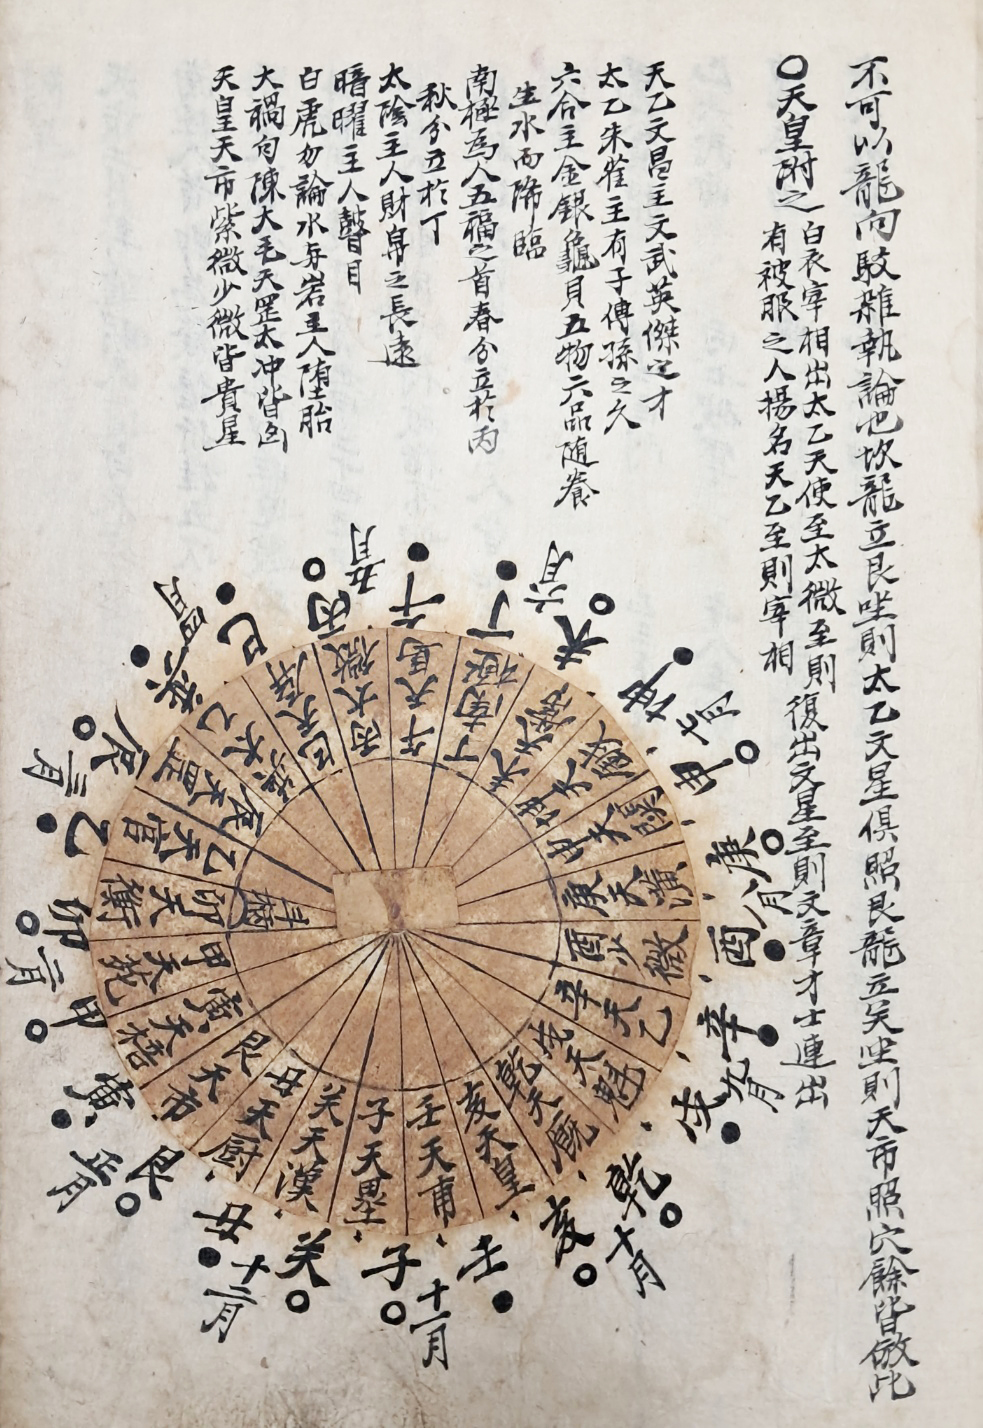 不可以龍向駁雜執論也坎龍立艮坐則太乙文星俱照艮龍立癸坐則天市照穴餘皆倣此
○天皇附之
白衣宰相出太乙天使至太微至則
有被服之人揚名天乙至則宰相
復出文星至則文章才士連出
天乙文昌主文武英傑之才
太乙朱雀主有子傅孫之久
六合主金銀龜貝五物六品随養
生水而降臨
南極為人五福之首春分立於丙
秋分立於丁
太陰主人財帛之長遠
暗曜主人瞽目
白虎勿論水与岩主人堕胎
大禍勾陳大毛天罡太冲皆凶
天皇天市紫微少微皆貴星
午 五月
丁
未 六月
坤
申 七月
庚
酉 八月
辛
戌 九月
乾
亥 十月
壬
子 十一月
癸
丑 十二月
艮
寅 正月
甲
卯 二月
乙
辰 三月
巽
巳 四月
丙
午天馬
丁南極
庚天潢
酉少微
辛天乙
戌天魁
乾天廐
亥天皇
壬天甫
子天壘
癸天漢
丑天厨
艮天市
寅天梧
甲天苑
卯天衡
乙天官
辰天罡
巽太乙
巳天屏
丙太微